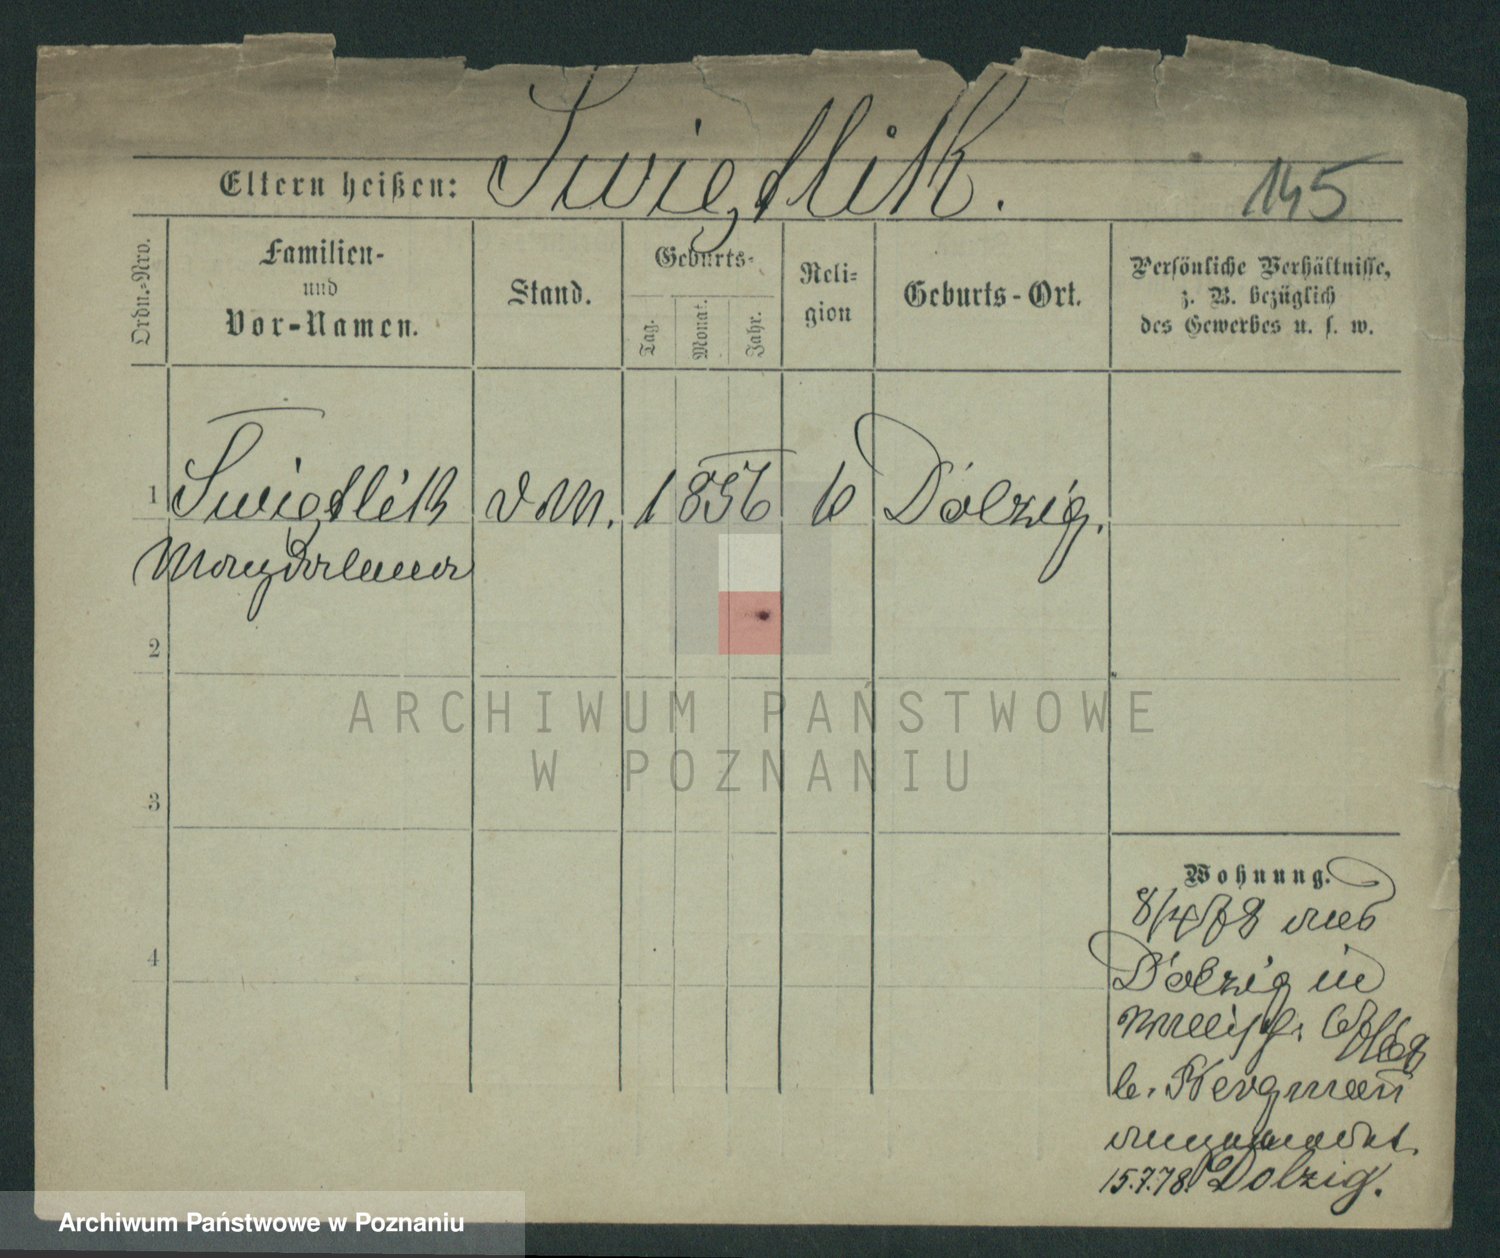 Swiętlik.
Eltern heißen:
145
Ordn.-Nro.
Familien-
und
Vor-Namen.
Stand.
Geburts-
Tag.
Monat.
Jahr.
Reli-
gion
Geburts-Ort.
Persönliche Verhältnisse,
z. B. bezüglich
des Gewerbes u. s. w.
1 Swiętlik 1856 Dolzig.
Magdalena
2
ARCHIWUM PAŃSTWOWE
W POZNANIU
3
Wohnung.
8/4 78 aus
4
Dolzig in
b. Bergmann
angemeldet.
15.7.78. Dolzig.
Archiwum Państwowe w Poznaniu